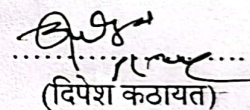 (दिपेश कठायत)